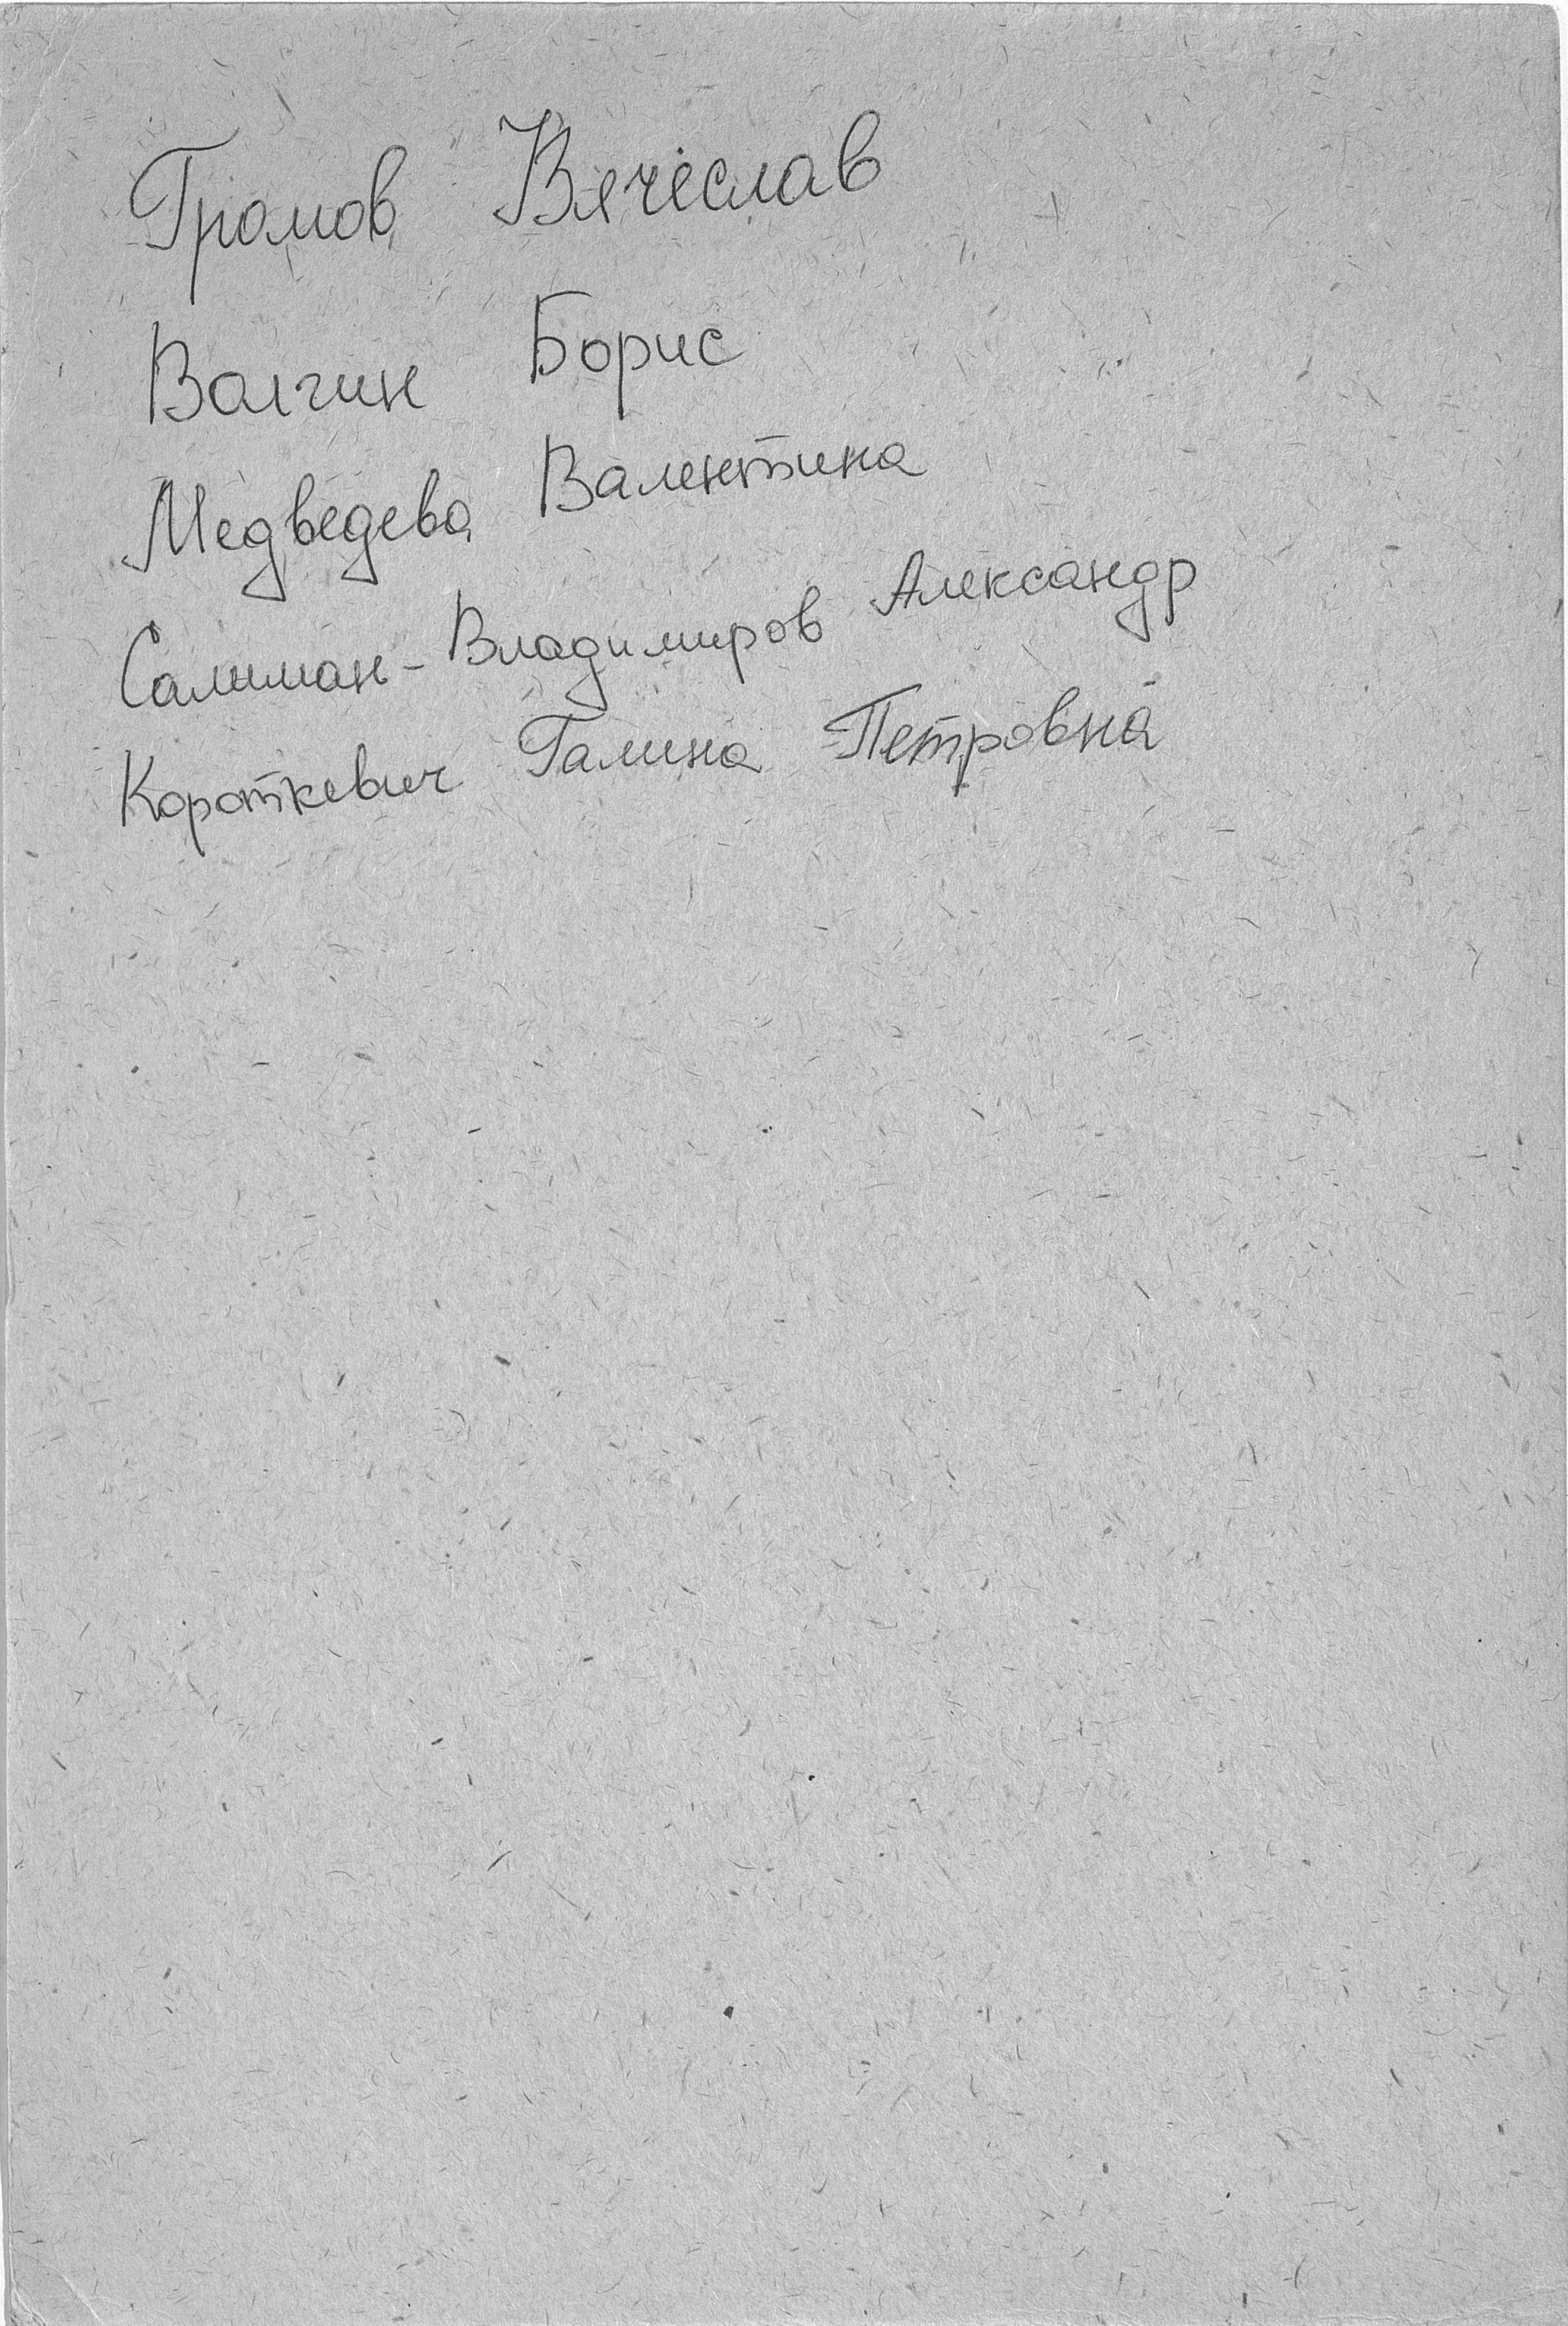 Громов Вячеслав
Волгин Борис
Медведева Валентина
Салиман-Владимиров Александр
Короткевич Галина Петровна